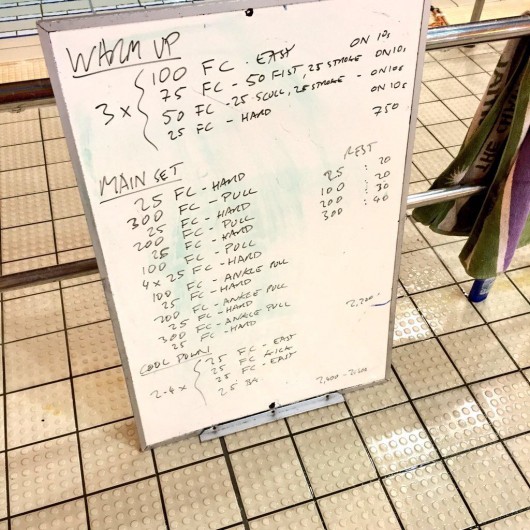 WARM UP
3 x { 100 FC - EASY ON 10s
75 FC - 50 FIST, 25 STROKE ON 10s
50 FC - 25 SCULL, 25 STROKE - ON 10s
25 FC - HARD ON 10s
750
MAIN SET
25 FC - HARD
300 FC - PULL
25 FC - HARD
200 FC - PULL
25 FC - HARD
100 FC - PULL
4 x 25 FC - HARD
100 FC - ANKLE PULL
25 FC - HARD
200 FC - ANKLE PULL
25 FC - HARD
300 FC - ANKLE PULL
25 FC - HARD
REST
25 : 20
100 : 20
200 : 30
300 : 40
2,200
COOL DOWN
2-4 x { 25 FC - EASY
25 FC KICK
25 FC - EASY
25